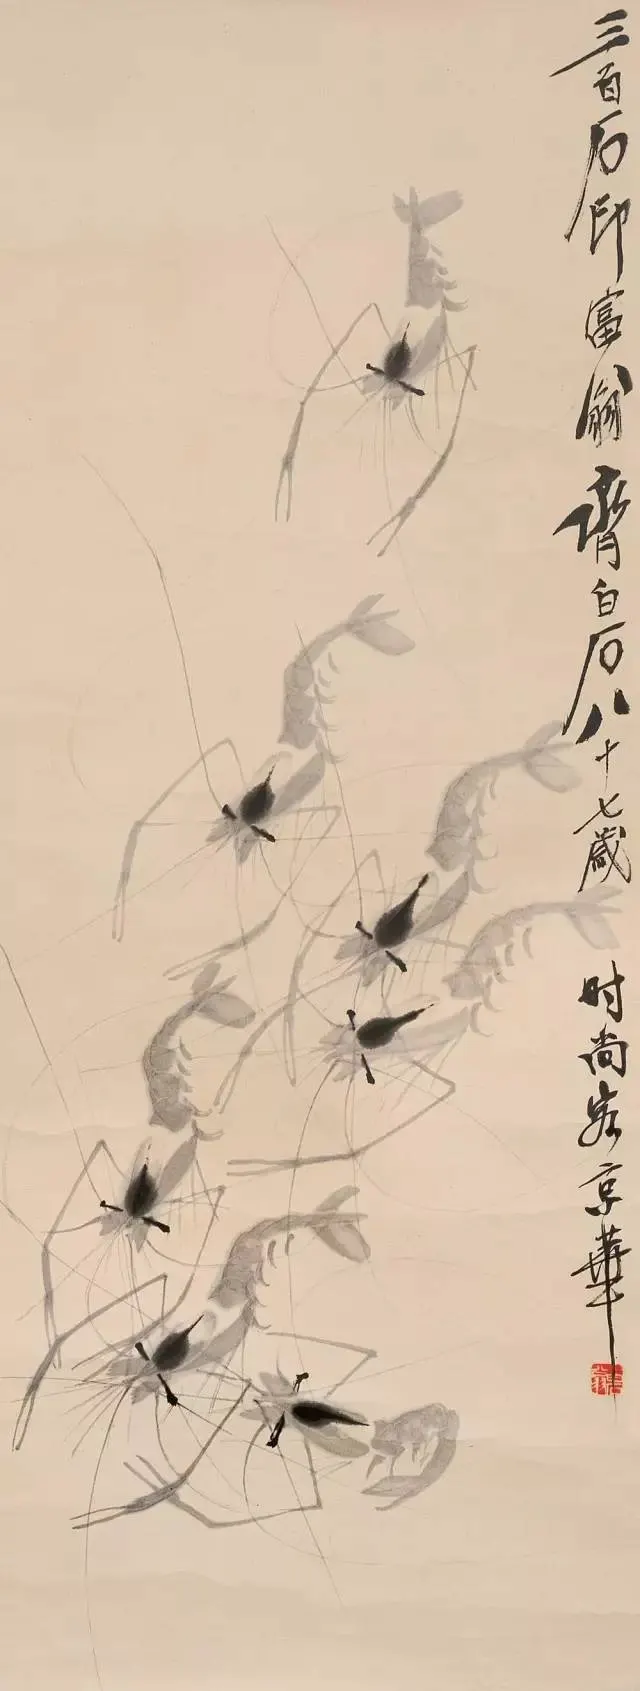 三百石印富翁齊白石八十七歲 时尚客京華